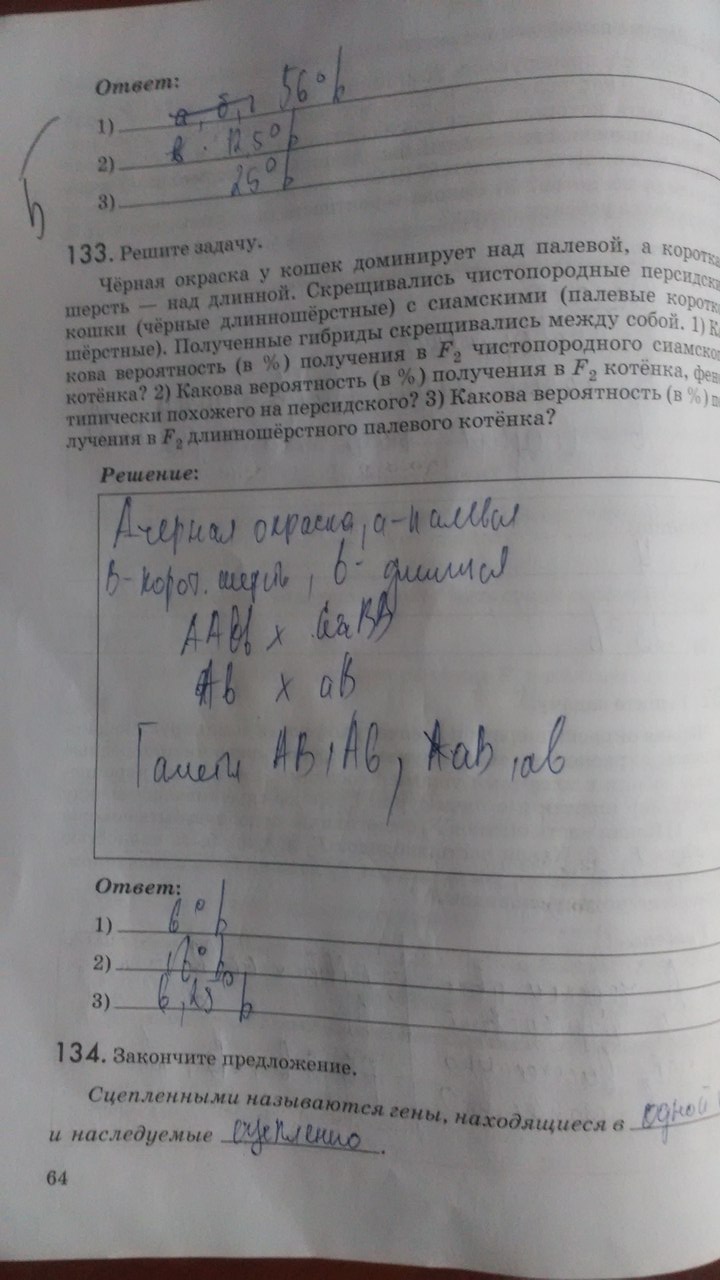 Ответ:
1) а, б, 56%
2) в. 125%
3) 25%
133. Решите задачу.
Чёрная окраска у кошек доминирует над палевой, а коротка
шерсть — над длинной. Скрещивались чистопородные персидски
кошки (чёрные длинношёрстные) с сиамскими (палевые коротко
шёрстные). Полученные гибриды скрещивались между собой. 1) Ка
кова вероятность (в %) получения в F₂ чистопородного сиамског
котёнка? 2) Какова вероятность (в %) получения в F₂ котёнка, фено
типически похожего на персидского? 3) Какова вероятность (в %) по
лучения в F₂ длинношёрстного палевого котёнка?
Решение:
А черная окраска, а-палевая
В-корот. шерсть, в-
ААвв х ааВВ
Ав х аВ
Гаметы АВ, Ав, аВ, ав
Ответ:
1) 6%
2)
3) 6,25%
134. Закончите предложение.
Сцепленными называются гены, находящиеся в одной
и наследуемые сцепленно.
64